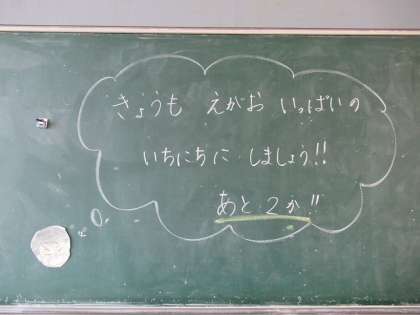 きょうも えがお いっぱいの
いちにちに しましょう!!
あと 2か!!